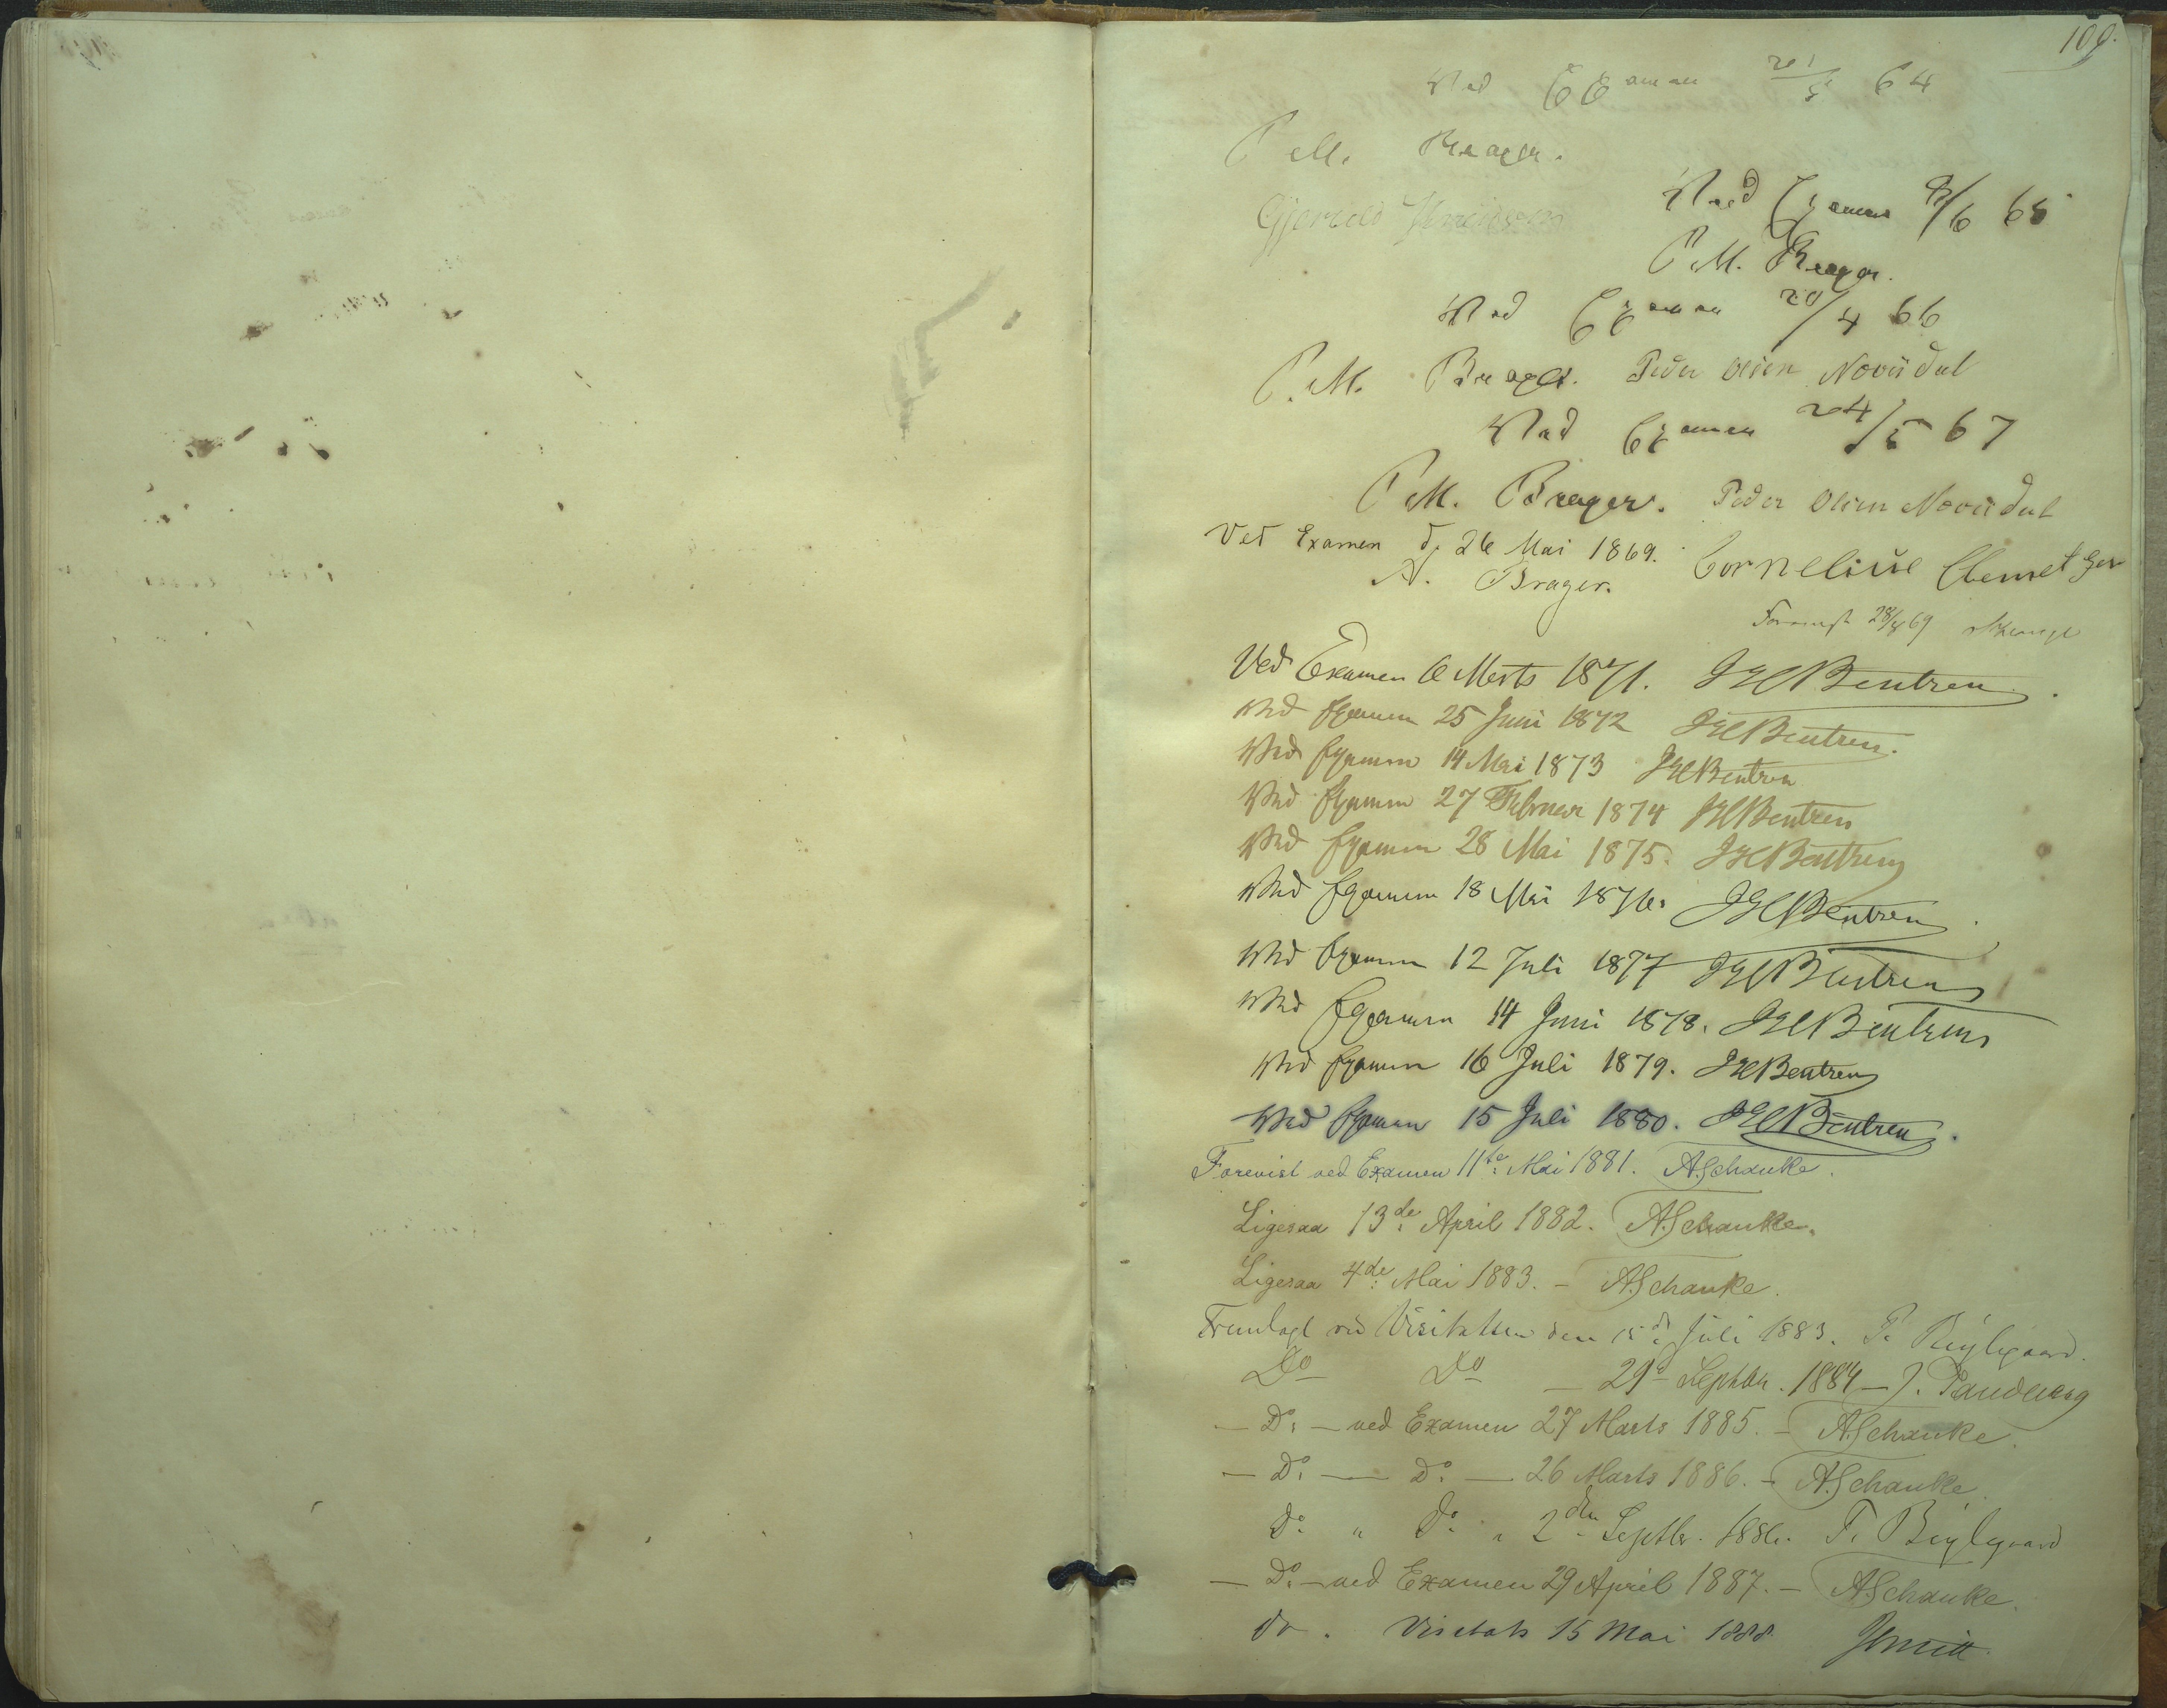 109.
Ved Examen 20/5 64
P M. Brager.
Ved Examen 9/6 65
P. M. Brager.
Ved Examen 20/4 66
P. M. Brager. Peder Olsen
Ved Examen 24/5 67
P M. Brager. Peder Olsen
Ved Examen d. 26 Mai 1869. Cornelius
A. Brager.
28/8 69
Ved Examen 6 Marts 1871. Bentzen.
Ved Examen 25 Juni 1872 Bentzen.
Ved Examen 14 Mai 1873 Bentzen
Ved Examen 27 Februar 1874 Bentzen
Ved Examen 28 Mai 1875. Bentzen
Ved Examen 18 Mai 1876. Bentzen.
Ved Examen 12 Juli 1877 Bentzen
Ved Examen 14 Juni 1878. Bentzen
Ved Examen 16 Juli 1879. Bentzen
Ved Examen 15 Juli 1880. Bentzen.
Forevist ved Examen 11te Mai 1881. A. Schanke.
Ligesaa 13de April 1882. A. Schanke.
Ligesaa 4de Mai 1883. – A. Schanke.
Fremlagt ved Visitatsen den 15de Juli 1883.
Do Do – 29 Septbr. 1884 –
– Do – ved Examen 27 Marts 1885. – A. Schanke.
– Do – Do – 26 Marts 1886. – A. Schanke.
do " do " 2den Septbr. 1886.
– Do – ved Examen 29 April 1887. – A. Schanke.
do. Visitats 15 Mai 1888